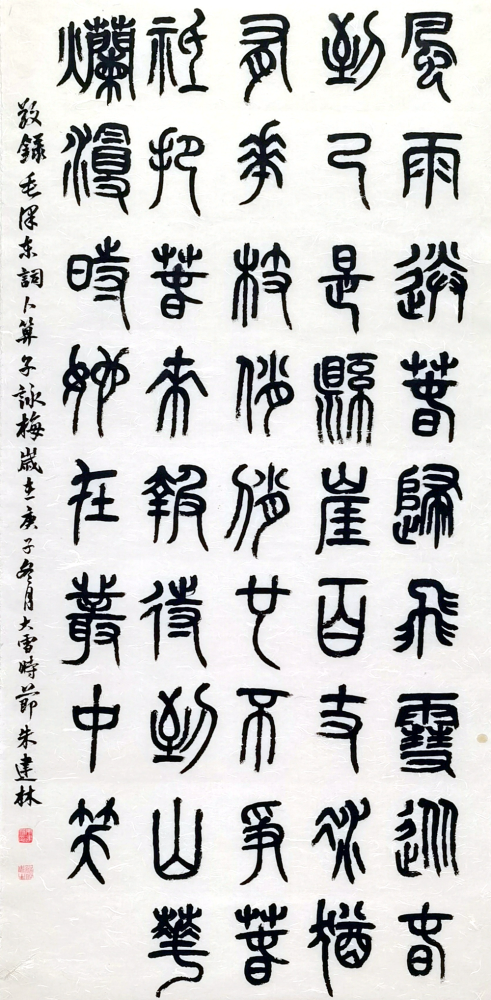 風雨送春歸飛雪迎春
到已是縣崖百丈冰猶
有花枝俏俏也不爭春
祇把春來報待到山華
爛漫時她在叢中笑
敬録毛澤东詞卜算子詠梅歲在庚子冬月大雪時節朱建林